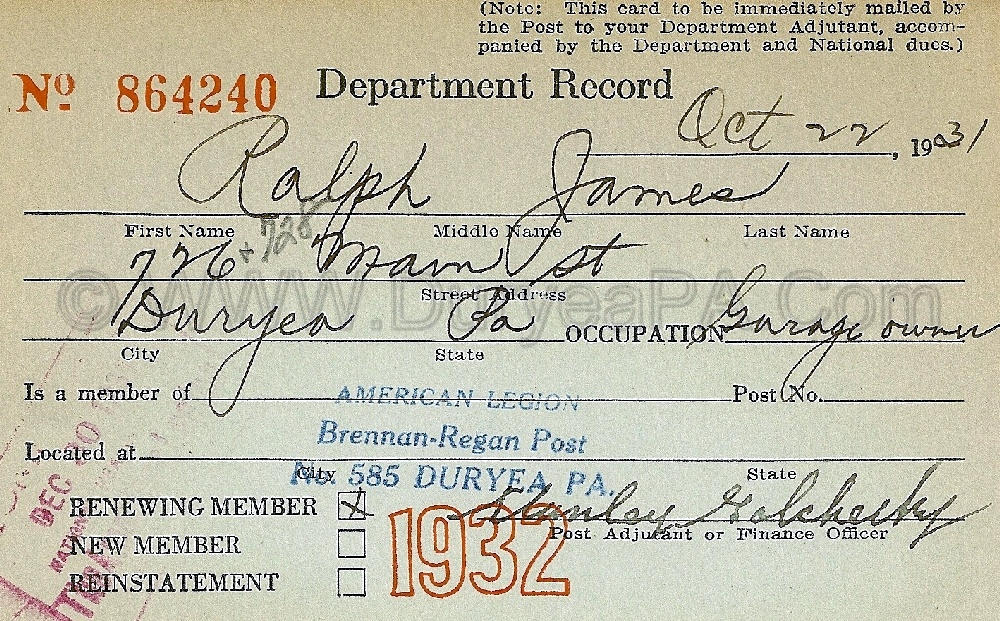 (Note: This card to be immediately mailed by
the Post to your Department Adjutant, accom-
panied by the Department and National dues.)
No 864240 Department Record
Oct 22, 1931
Ralph James
First Name Middle Name Last Name
726 + 728 Main St
Street Address
© WWW.DuryeaPA.Com
Duryea Pa OCCUPATION Garage owner
City State
Is a member of AMERICAN LEGION Post No.
Brennan-Regan Post
Located at
No 585 DURYEA PA.
City State
RENEWING MEMBER X
Stanley
Post Adjutant or Finance Officer
NEW MEMBER
1932
REINSTATEMENT
DEC 30